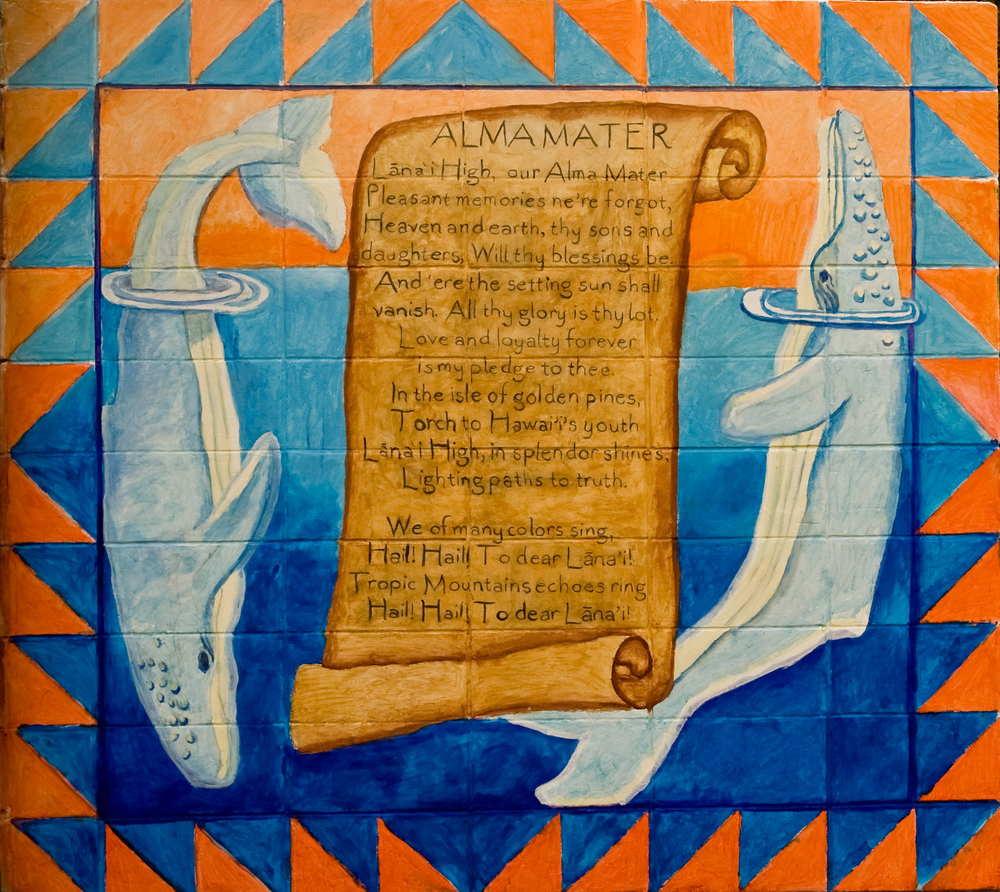 ALMA MATER
Lāna'i High, our Alma Mater
Pleasant memories ne're forgot,
Heaven and earth, thy sons and
daughters, Will thy blessings be.
And 'ere the setting sun shall
vanish. All thy glory is thy lot.
Love and loyalty forever
is my pledge to thee.
In the isle of golden pines,
Torch to Hawai'i's youth
Lāna'i High, in splendor shines,
Lighting paths to truth.
We of many colors sing,
Hail! Hail! To dear Lāna'i!
Tropic Mountains echoes ring
Hail! Hail! To dear Lāna'i!